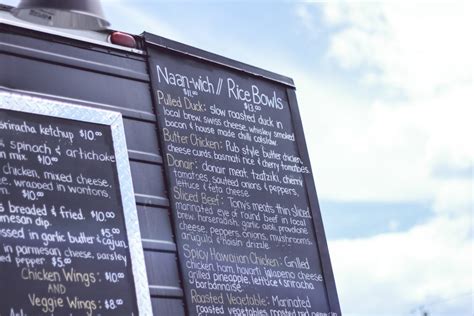 sriracha ketchup $10.00
spinach & artichoke
chicken, mixed cheese,
wrapped in wontons.
$10.00
breaded & fried. $10.00
parmesan dip.
tossed in garlic butter & cajun,
in parmesan cheese, parsley
$10.00
Chicken Wings : $10.00
AND
Veggie Wings : $10.00
Naan-wich // Rice Bowls
$11.00 $13.00
Pulled Duck: slow roasted duck in
local brew, swiss cheese, whiskey smoked
bacon & house made chilli coleslaw
Butter Chicken: Pub style butter chicken,
cheese curds, basmati rice & cherry tomatoes.
Donair: donair meat, tzatziki, cherry
tomatoes, sauteed onions & peppers,
lettuce & feta cheese
Sliced Beef: Tony's meats thin sliced
marinated eye of round beef in local
brew, horseradish, garlic aioli, provolone
cheese, peppers, onions, mushrooms,
arugula & drizzle.
Spicy Hawaiian Chicken: Grilled
chicken, ham, havarti jalapeno cheese
grilled pineapple, lettuce & sriracha
Roasted Vegetable: Marinated
roasted